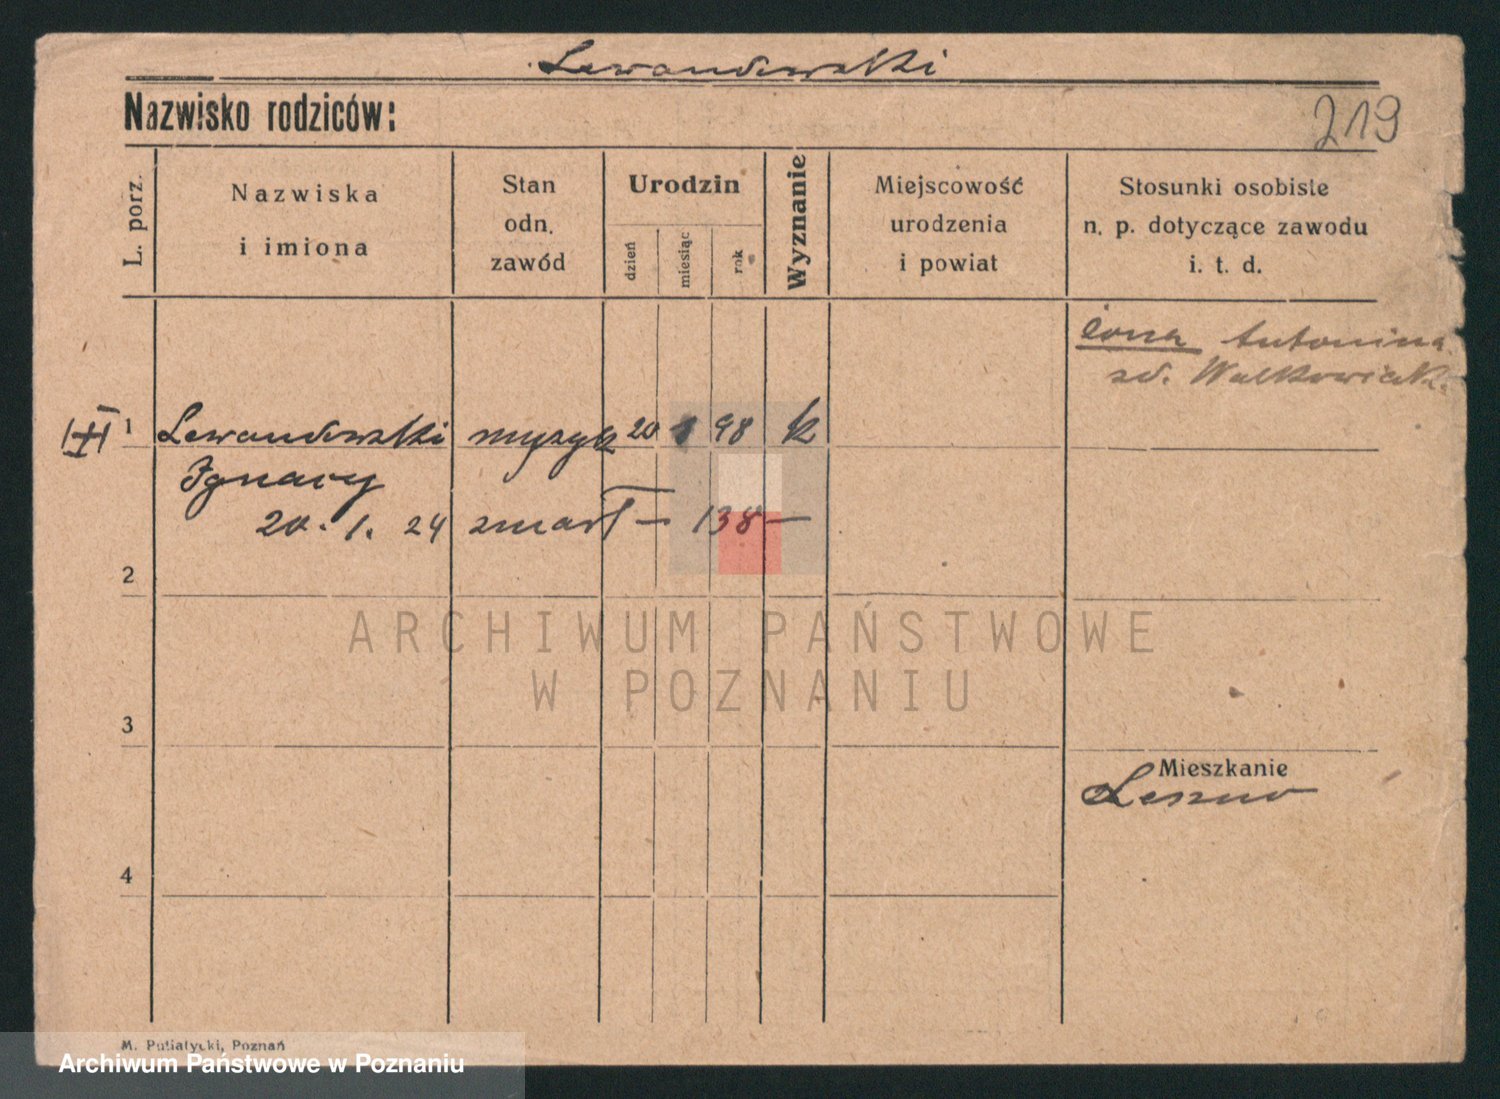 Lewandowski
Nazwisko rodziców:
219
L. porz.
Nazwiska
i imiona
Stan
odn.
zawód
Urodzin
dzień
miesiąc
rok
Wyznanie
Miejscowość
urodzenia
i powiat
Stosunki osobiste
n. p. dotyczące zawodu
i. t. d.
żona Antonina
Walkowiak.
1 Lewandowski muzyk 20 8 98 k
Ignacy
20. 1. 24 zmarł — 138 —
2
ARCHIWUM PAŃSTWOWE
W POZNANIU
3
Mieszkanie
Leszno
4
M. Putiatycki, Poznań
Archiwum Państwowe w Poznaniu